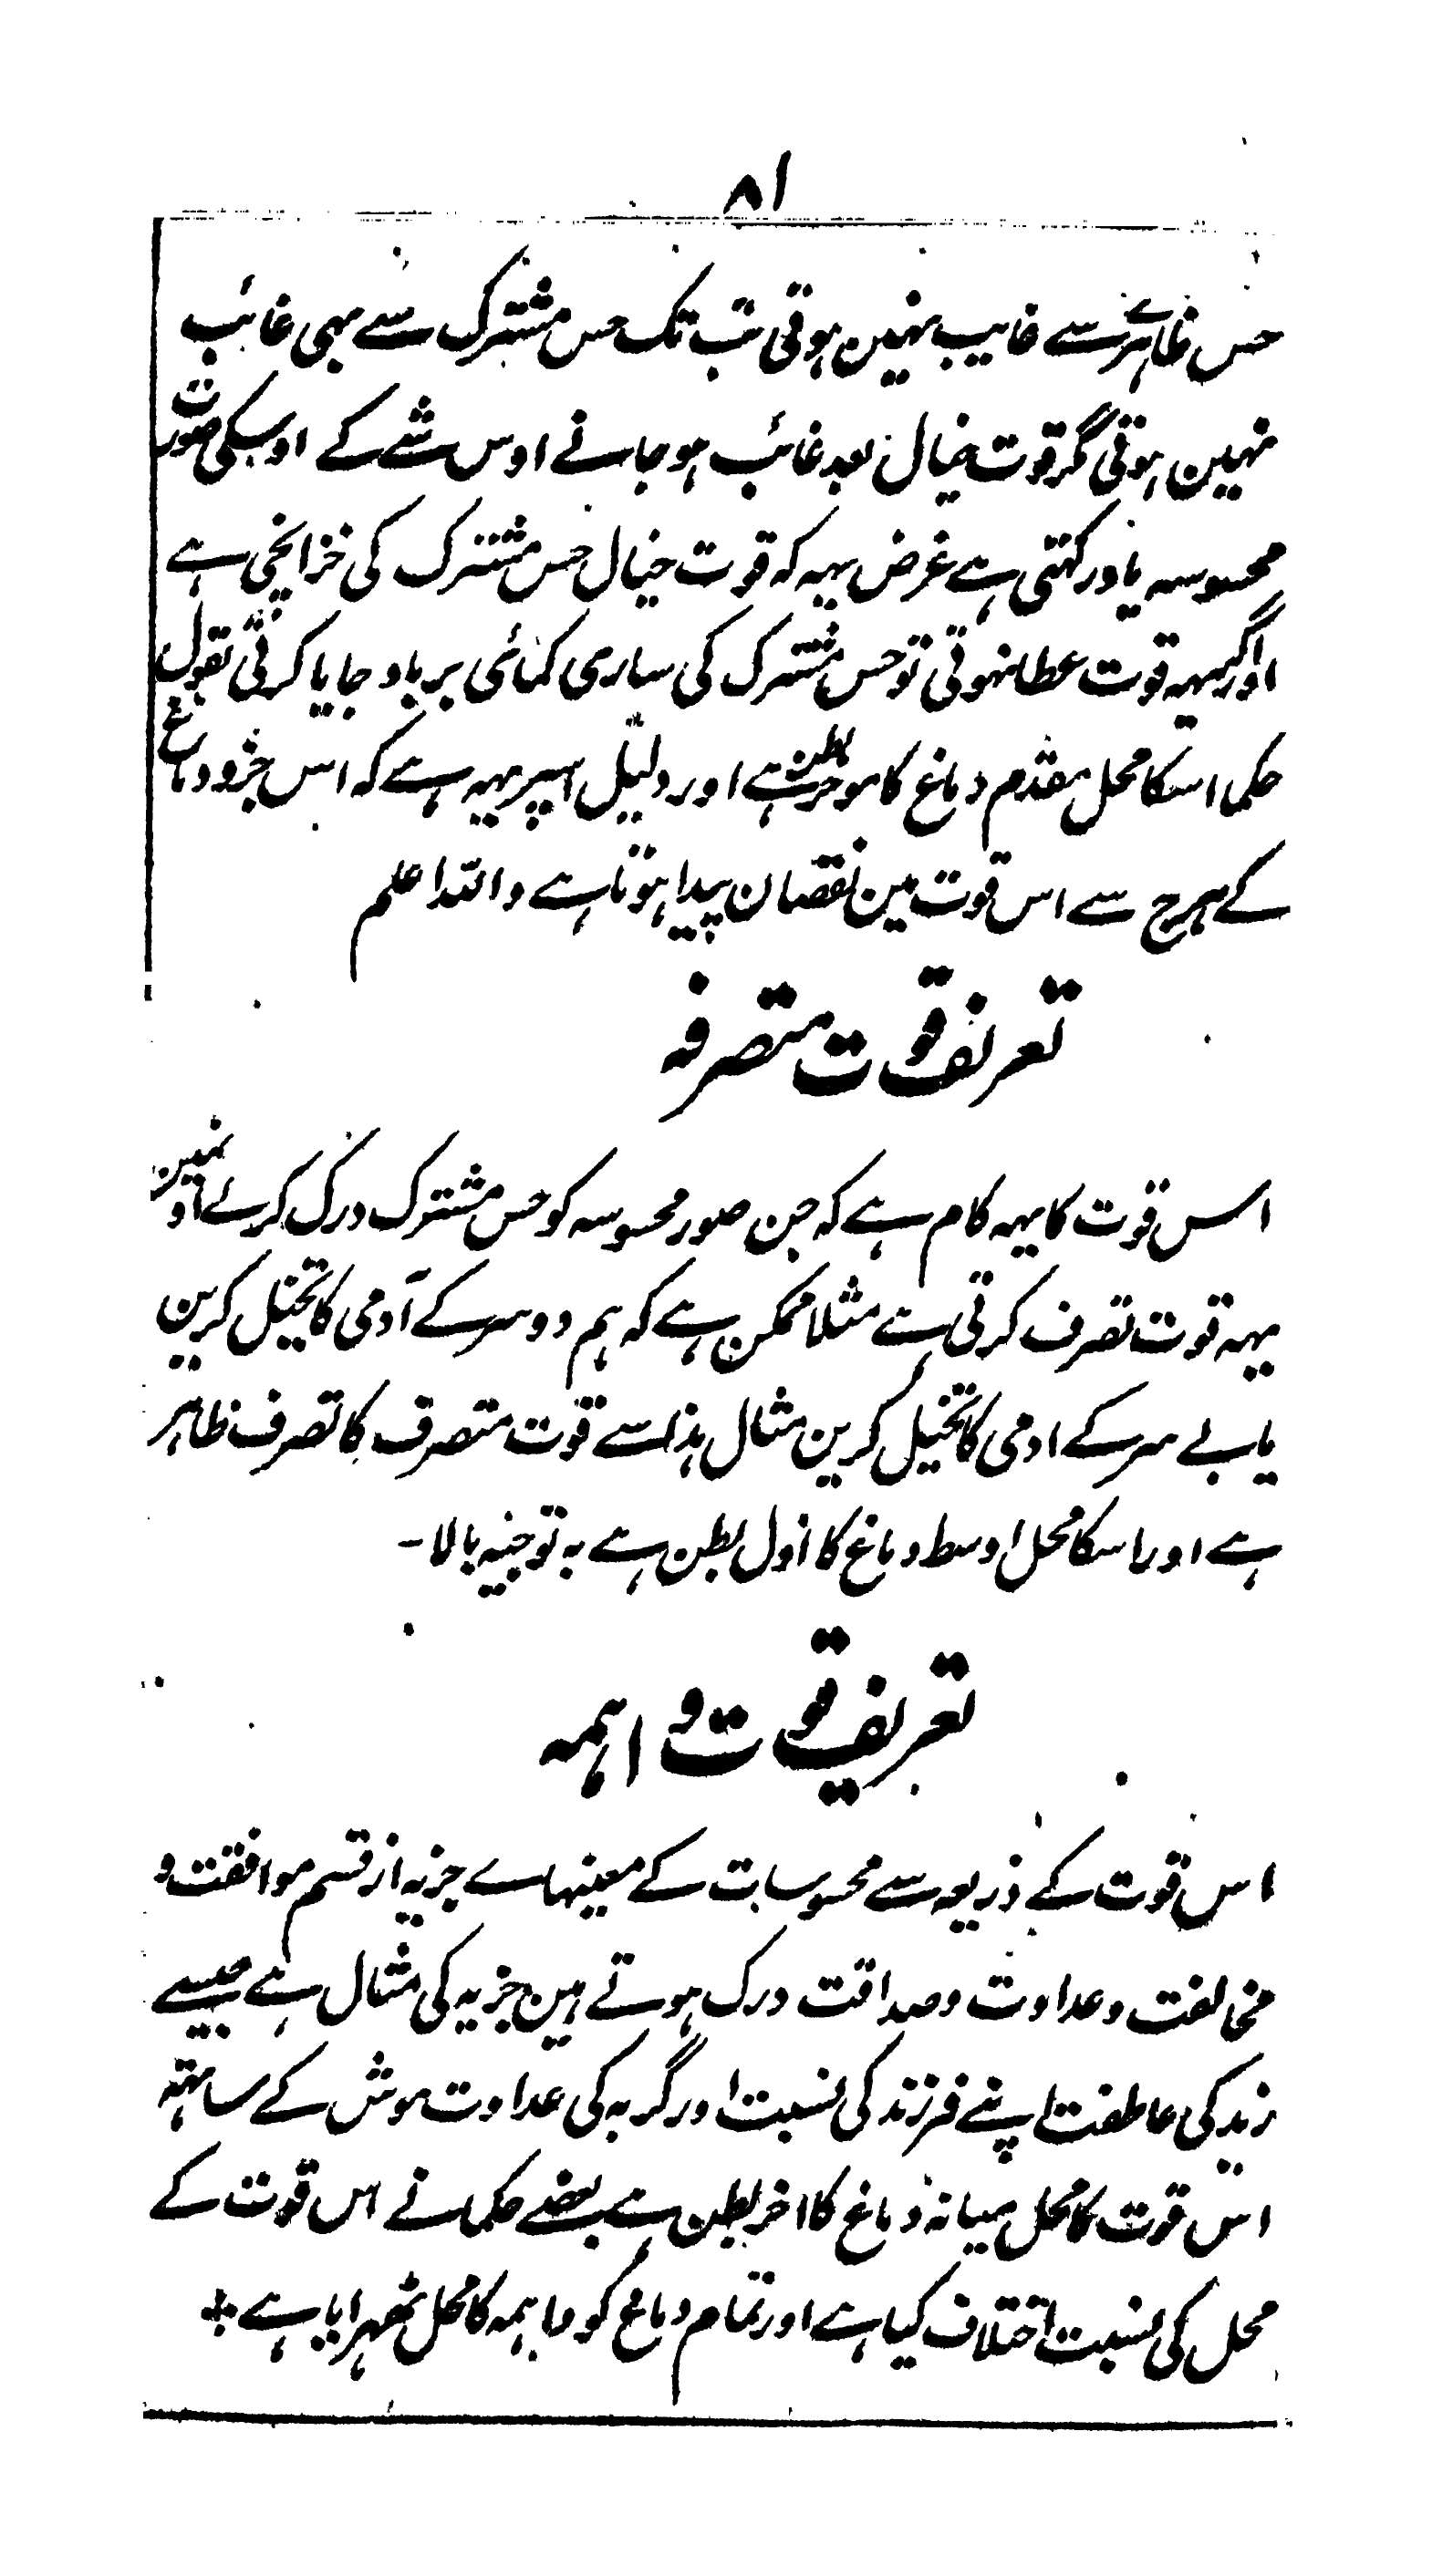 ۸۱
حس ظاہرے سے غایب نہین ہوتی تب تک حس مشترک سے بہی غائب
نہین ہوتی مگر قوت خیال بعد غائب ہو جانے اوس شے کے اوسکی صورت
محسوسہ یاد رکہتی ہے غرض یہہ کہ قوت خیال حس مشترک کی خزانچی ہے
اور اگر یہہ قوت عطا نہوتی تو حس مشترک کی ساری کمائی برباد جایا کرتی بقول
حکما اسکا محل مقدم دماغ کا موخر بطن ہے اور دلیل اسپر یہہ ہے کہ اس جزو دماغ
کے ہرج سے اس قوت مین نقصان پیدا ہوتا ہے واللہ اعلم
تعریف قوت متصرفہ
اس قوت کا یہہ کام ہے کہ جن صور محسوسہ کو حس مشترک درک کرے اونمین
یہہ قوت تصرف کرتی ہے مثلا ممکن ہے کہ ہم دو سر کے آدمی کا تخیل کرین
یا بے سر کے ادمی کا تخیل کرین مثال ہذا سے قوت متصرف کا تصرف ظاہر
ہے اور اسکا محل اوسط دماغ کا اول بطن ہے بہ توجیہ بالا -
تعریف قوت واہمہ
اس قوت کے ذریعہ سے محسوسات کے معینہاے جزیہ از قسم موافقت و
مخالفت و عداوت و صداقت درک ہوتے ہین جزیہ کی مثال ہے جیسے
زید کی عاطفت اپنے فرزند کی نسبت اور گربہ کی عداوت موش کے ساتہہ
اس قوت کا محل میانہ دماغ کا اخر بطن ہے بعضے حکما نے اس قوت کے
محل کی نسبت اختلاف کیا ہے اور تمام دماغ کو واہمہ کا محل ٹھہرایا ہے ÷